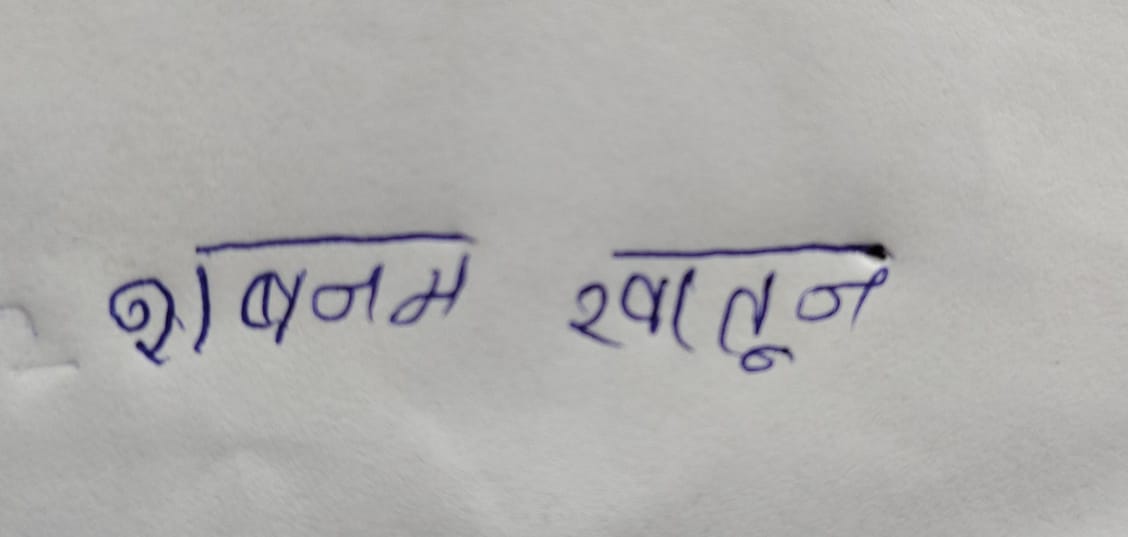 शबनम खातून